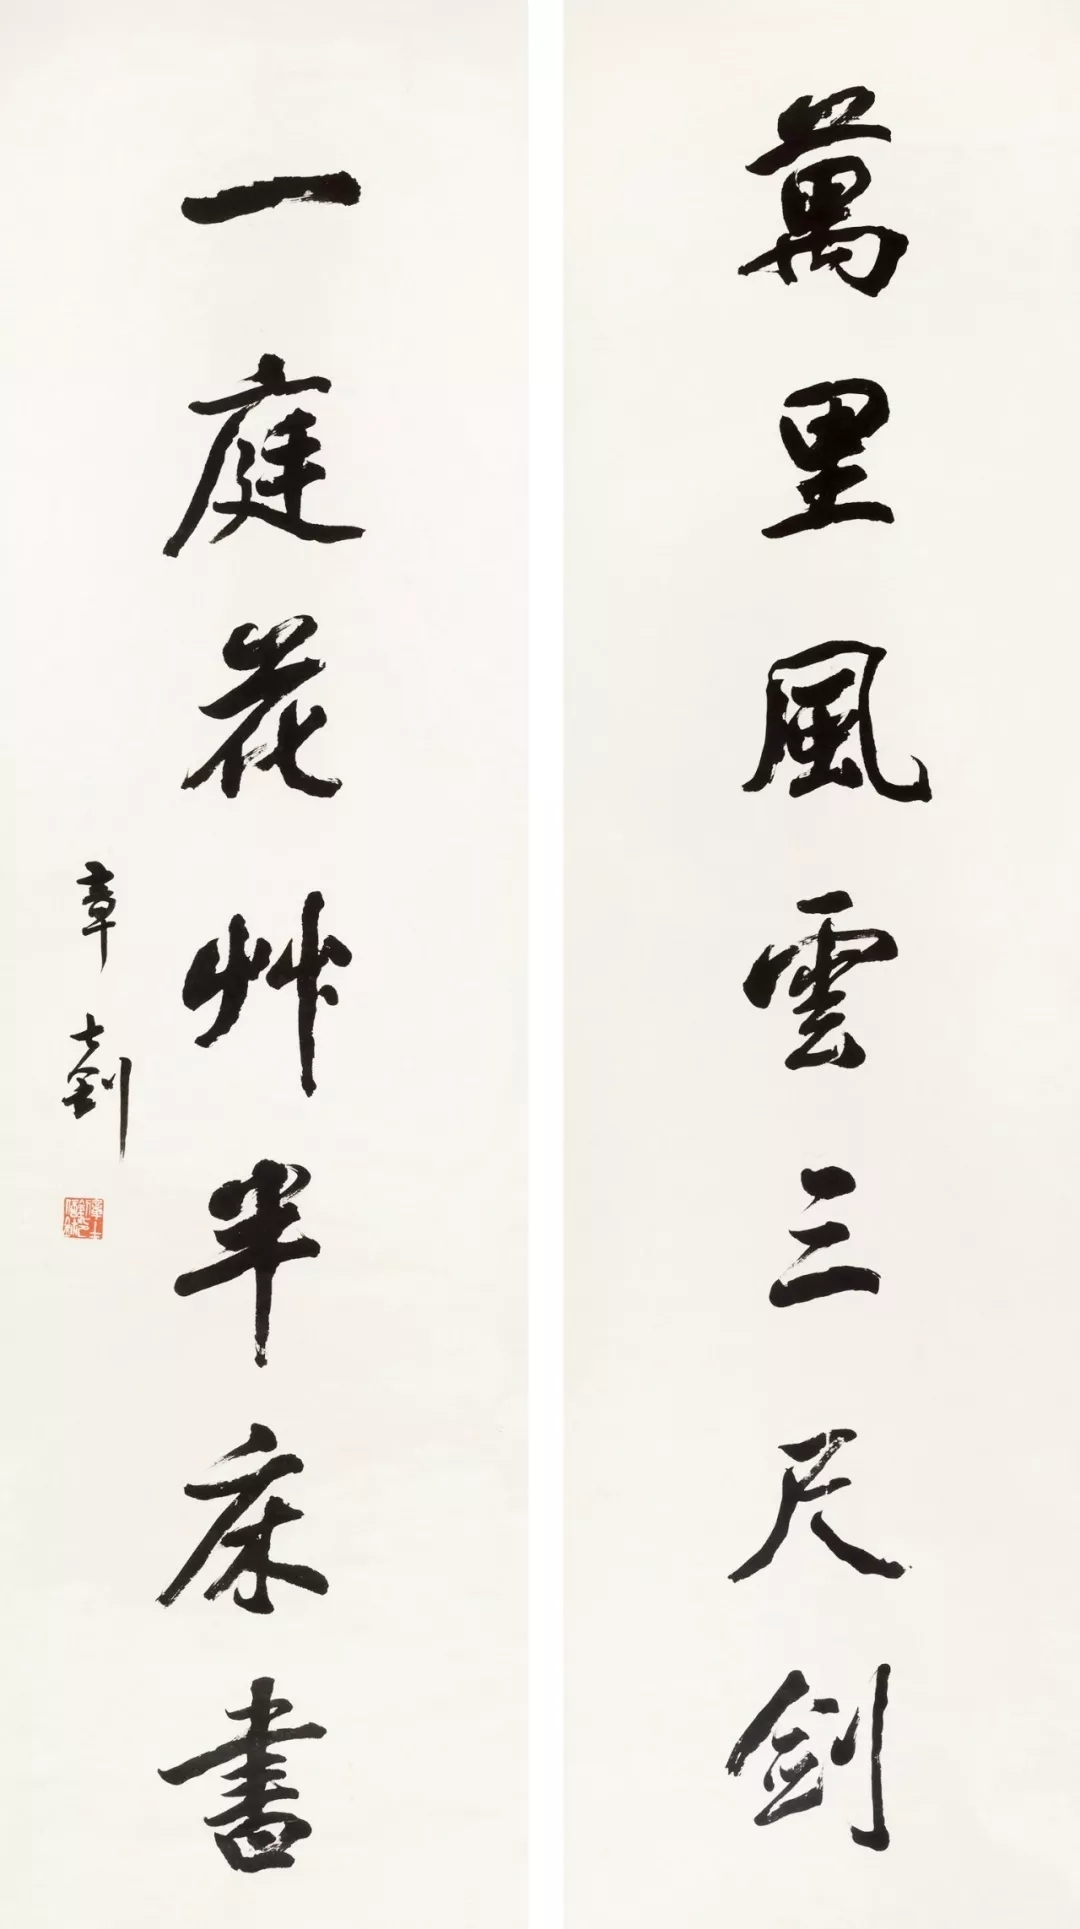 萬里風雲三尺剑
一庭花艸半床書
章士釗